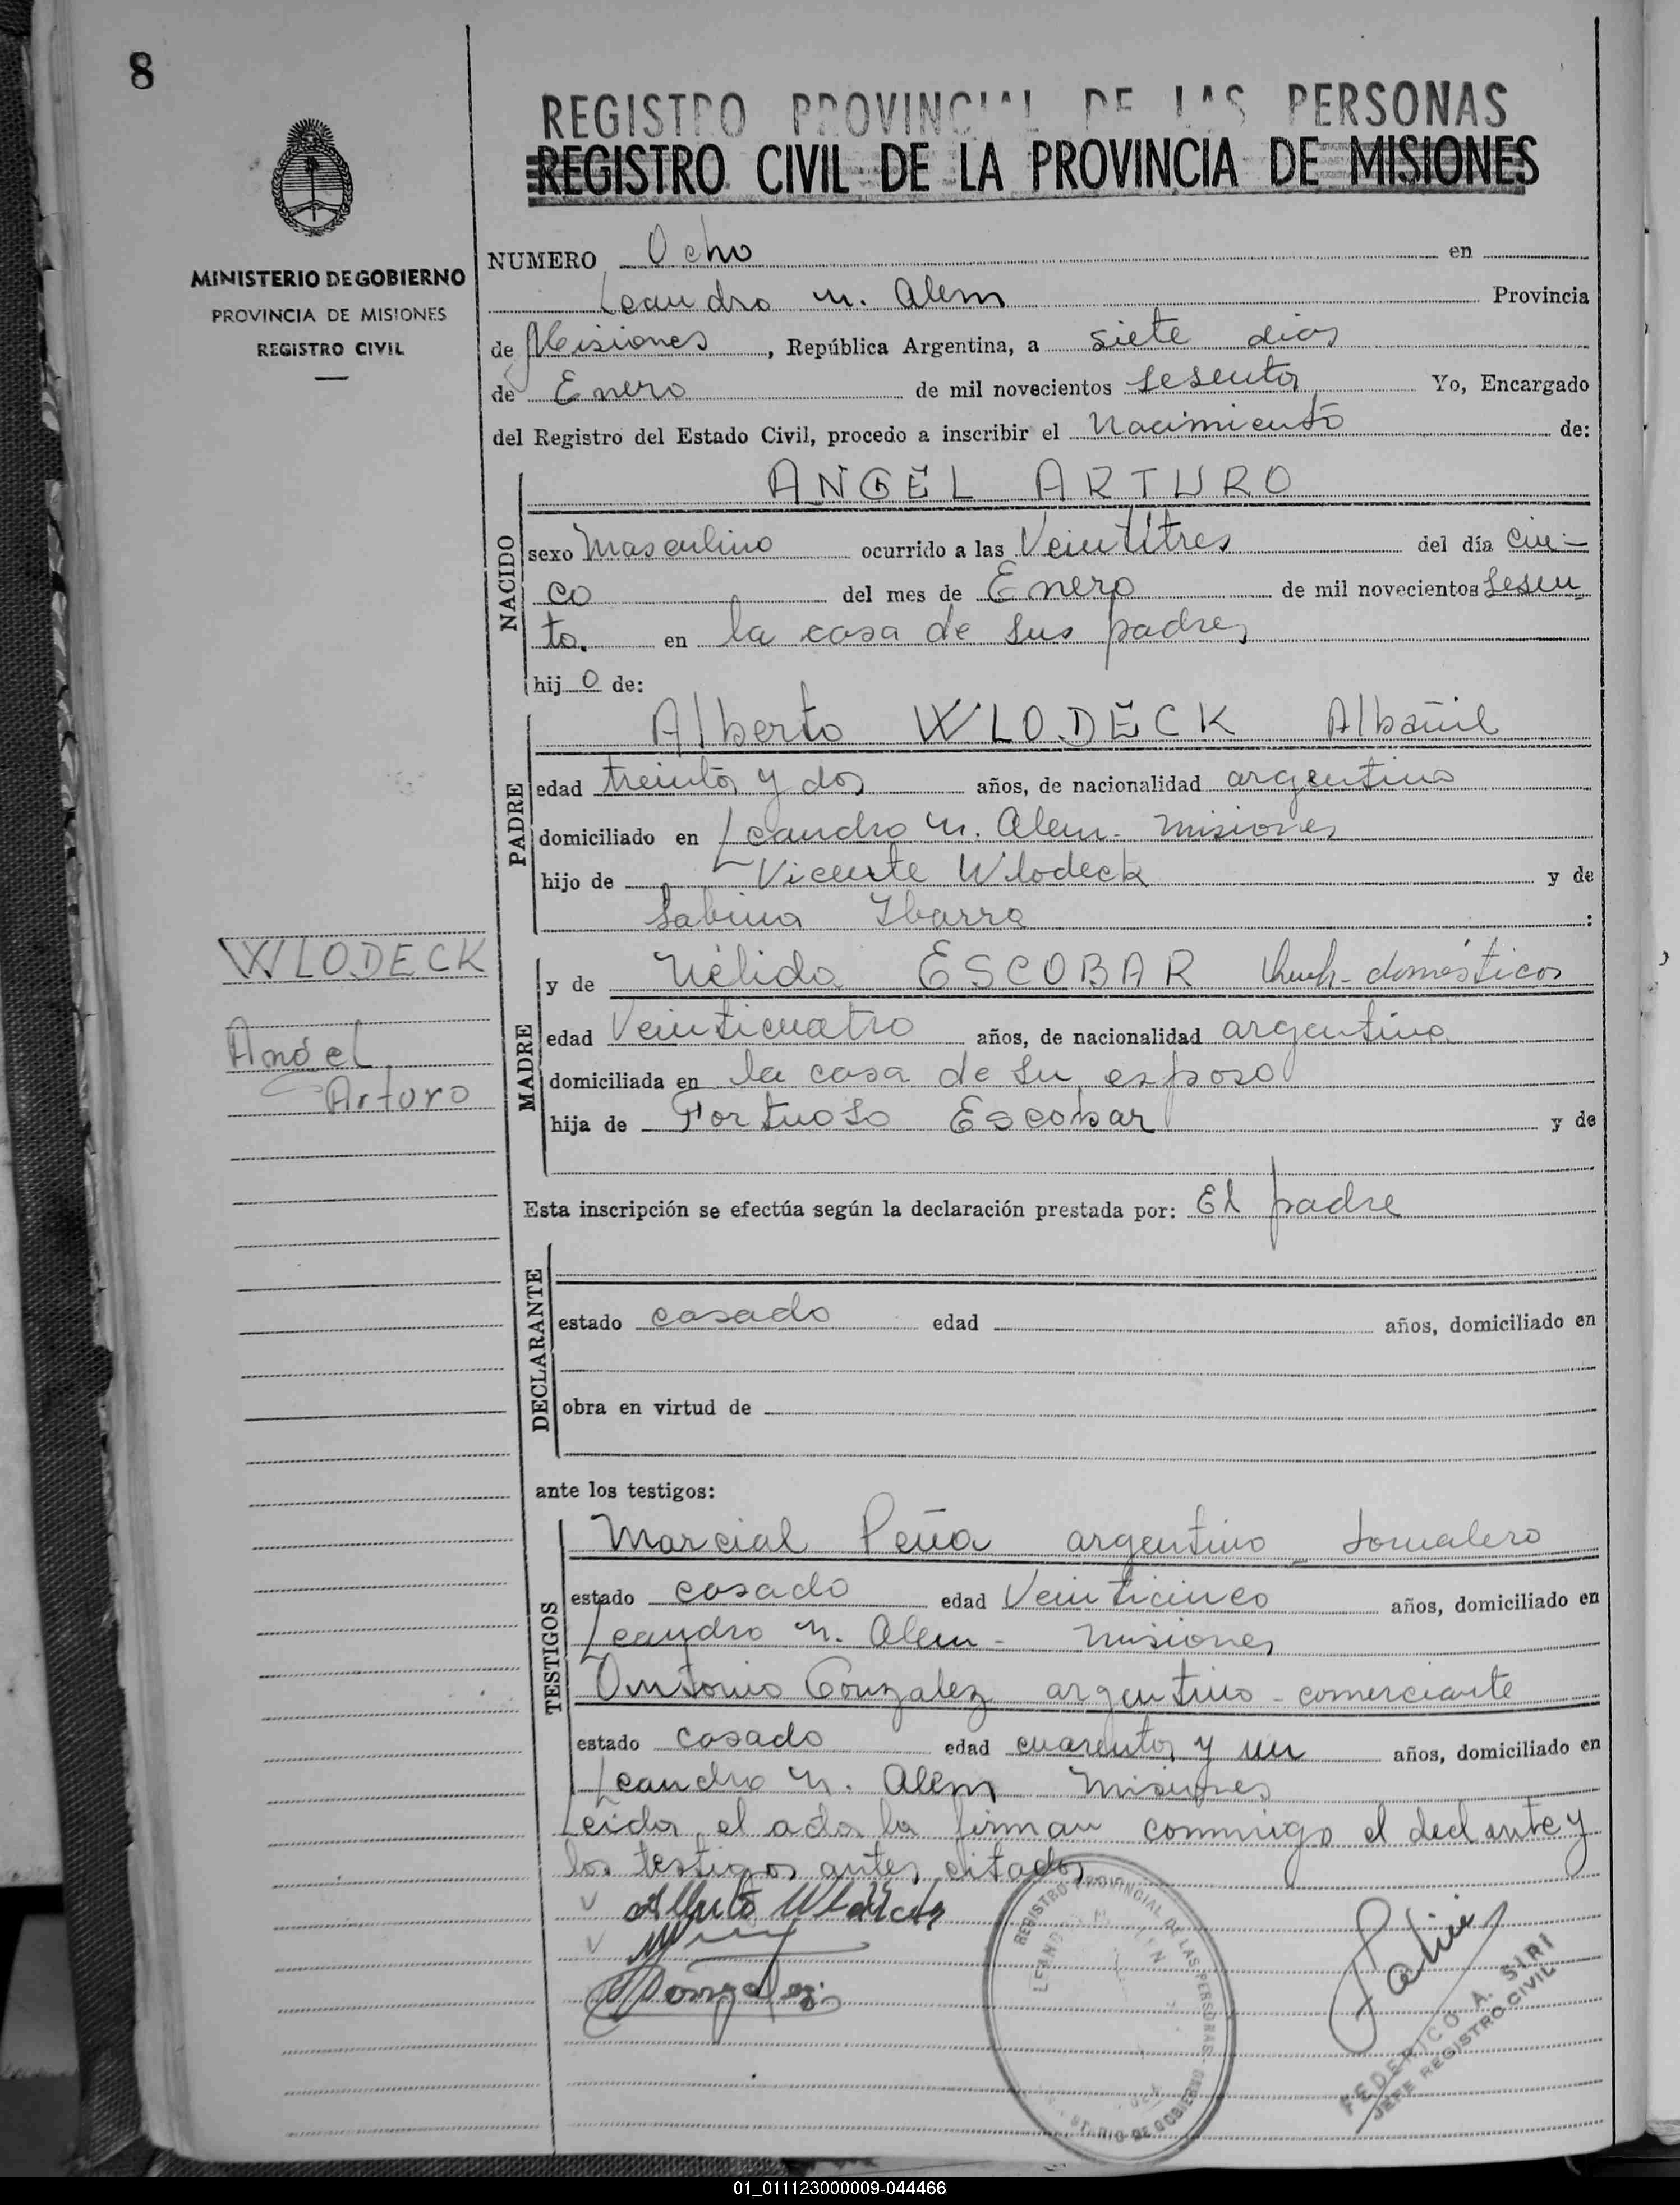 8
REGISTRO PROVINCIAL DE LAS PERSONAS
REGISTRO CIVIL DE LA PROVINCIA DE MISIONES
MINISTERIO DE GOBIERNO
PROVINCIA DE MISIONES
REGISTRO CIVIL
NUMERO Ocho en
Leandro N. Alem Provincia
de Misiones, República Argentina, a siete dias
de Enero de mil novecientos sesenta Yo, Encargado
del Registro del Estado Civil, procedo a inscribir el Nacimiento de:
NACIDO
ANGEL ARTURO
sexo Masculino ocurrido a las Veintitres del día cin-
co del mes de Enero de mil novecientos sesen
ta. en la casa de sus padres
hijo de:
PADRE
Alberto WLODECK Albañil
edad treinta y dos años, de nacionalidad argentino
domiciliado en Leandro N. Alem - Misiones
hijo de Vicente Wlodeck y de
Sabina Ibarra :
WLODECK
Angel
Arturo
MADRE
y de Nélida ESCOBAR domésticos
edad Veinticuatro años, de nacionalidad argentina
domiciliada en la casa de su esposo
hija de Fortuoso Escobar y de
Esta inscripción se efectúa según la declaración prestada por: El padre
DECLARANTE
estado casado edad años, domiciliado en
obra en virtud de
ante los testigos:
TESTIGOS
Marcial Peña argentino - Jornalero
estado casado edad Veinticinco años, domiciliado en
Leandro N. Alem - Misiones
Antonio Gonzalez argentino - comerciante
estado casado edad cuarenta y un años, domiciliado en
Leandro N. Alem Misiones
Leida el acta la firman conmigo el declante y
los testigos antes citados
Alberto Wlodeck
Gonzalez
REGISTRO PROVINCIAL DE LAS PERSONAS
FEDERICO A. SIRI
JEFE REGISTRO CIVIL
01_011123000009-044466